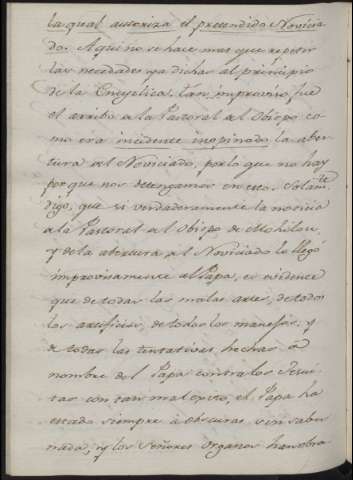 la qual autoriza el pretendido Novicia-
do. Aqui no se hace mas que repetir
las necedades ya dichas al principio
de la Encyclica, tan improviso fue
el arribo a la Pastoral del Obispo co-
mo era incidente inopinado la aber-
tura del Noviciado, por lo que no hay
porque nos detengamos en esto. Solam.te
digo, que si verdaderamente la noticia
a la Pastoral del Obispo de Mohilou,
y de la abertura del Noviciado le llegó
improvisamente al Papa, es evidente
que de todas las malas artes, de todos
los artificios, de todos los manejos, y
de todas las tentativas, hechas a
nombre del Papa contra los Jesui-
tas con tan mal exito, el Papa ha
estado siempre à obscuras sin saber
nada, y los Señores Organos han obra-